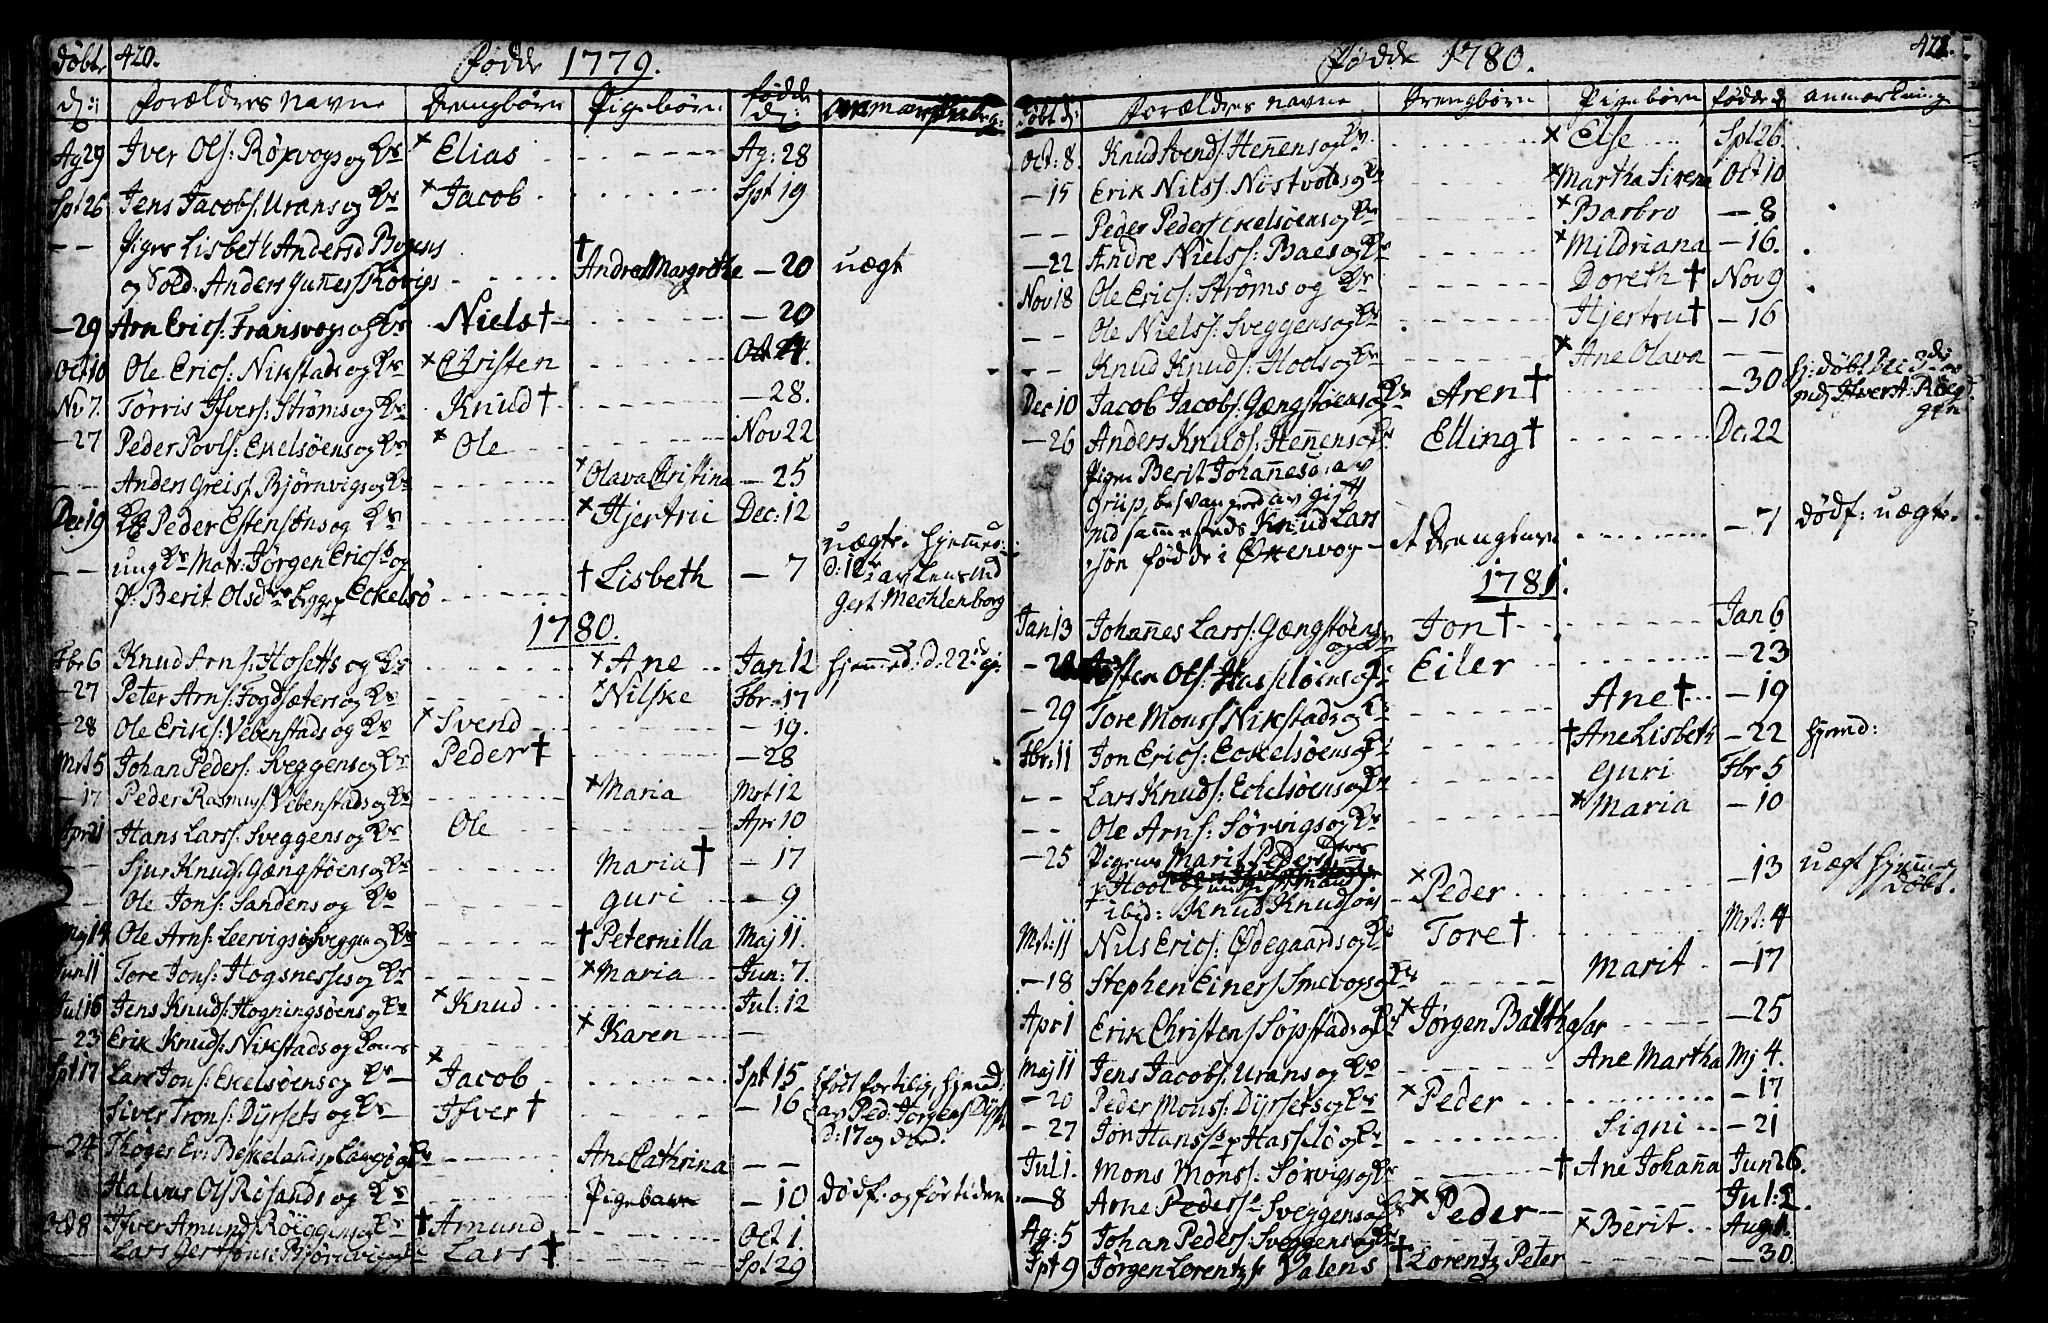 døbt 420. Fødde 1779.
d: Forældres navne Drengbørn Pigebørn fødde d:
Ag 29 Iver Ols: Røxvogs og Kv × Elias Ag: 28
Spt 26 Jens Jacobs: Urans og Kv × Jacob Spt 19
— — Piges Lisbeth Andersd
og Sold. Anders Guñers Røvigs † Andrea Margrethe — 20 uægt
— 29 Arn Erics: Fransvogs og Kv Niels † — 20
Oct 10 Ole Erics: Nikstads og Kv × Christen Oct 4.
Nv 7. Tørris Ifvers: Strøms og Kv Knud † — 28.
— 27 Peder Povls: Ekelsøens og Kv × Ole Nov 22
— — Anders Greis: Bjørnvigs og Kv × Olava Christina — 25
Dec 19 Peder Estensøns og Kv × Hjertru Dec: 12
— — ung Mats: Jørgen Erics: og
P: Berit Olsd begge Eckelsø † Lisbeth — 7 uægte. hjemmed:
d: 12 av Lensmd
Gert Mechlenborg
1780.
Fbr 6 Knud Arns: Hosetts og Kv × Ane Jan 12 hjemmed: d: 22
— 27 Peter Arns: Fogdsæters og Kv × Nilske Fbr: 17
— 28 Ole Erics: Vebenstads og Kv × Svend — 19.
Mrt 5 Johan Peders: Sveggens og Kv Peder † — 28
— 17 Peder Rasmus: Vebenstads og Kv × Maria Mrt 12
Apr 21 Hans Lars: Sveggens og Kv Ole Apr 10
— Sjur Knuds: Gængstøens og Kv Maria † — 17
— Ole Jons: Sandens og Kv Guri — 9
Maj 14 Ole Arns: Leervigs og Kv † Peternilla Maj 11.
Jun 11 Tore Jons: Hogsnesses og Kv × Maria Jun: 7.
Jul 16 Jens Knuds: Hogningsøens og Kv × Knud Jul: 12
— 23 Erik Knuds: Nikstads og × Karen —
Spt 17 Lars Jons: Ekelsøens og Kv × Jacob Spt 15
Siver Trons: Dyrsets og Kv Ifver † — 16 født fortilig, hjemd:
av Ped: Jørgens Dyrs
d: 17 og død.
— 24 Ane Cathrina — —
Halvor Ols Røsands og Kv Pigebarn — 10 dødf: og førtiden
Oct 8 Ifver Amund: Røeggens og Kv † Amund Oct 1.
Lars Gert Lars † Spt 29
Fødde 1780. 421.
døbt d: Forældres navne Drengbørn Pigebørn fødde d anmærkning
Oct: 8. Knud Svends: Heñens og Kv × Else Spt 26.
— 15 Erik Nils: Nostvolds og Kv × Martha Sirena Oct 10
— — Peder Peders: Ekelsøens og Kv × Barbro — 8
— 22 Andre Niels: Baes og Kv × Mildriana — 16.
Nov 18 Ole Erics: Strøms og Kv Doreth † Nov 9
— Ole Niels: Sveggens og Kv Hjertru † — 16
— — Knud Knuds: Hools og Kv × Ane Olava — —
Dec 10 Jacob Jacobs: Gængstøens og Kv Aren † — 30 hj: døbt Dec 3
— 26 Anders Knuds: Heñens og Kv Elling † Dc: 22
Pigen Berit Johañesd: av
Grip, besvangred av gift
Knud Lars
søn fødde i Økenvog — Drengbarn — 7 dødf: uægte.
1781.
Jan 13 Johañes Lars: Gængstøens
og Kv Jon † Jan 6
Østen Ols: Hasseløens og Eiler — 23
— 29 Tore Mons: Nikstads og Kv Ane † — 19
Fbr: 11 Jon Erics: Eckelsøens og † Ane Lisbeth — 22 hjemd:
— — Lars Knuds: Eckelsøens og Kv Guri Fbr 5
— — Ole Arns: Sørvigs og Kv × Maria — 10
— 25 Pigens Marit Peders
Hool
ibid: Knud Knudsøns × Peder — 13 uægt hjemme
døbt.
Mrt: 11 Nils Erics: Ødegaards og Kv Tore † Mrt: 4
— 18 Stephen Einers Smevogs og Kv Marit — 17
Apr 1 Erik Christens Søpstads og Kv × Jørgen Balthasar — 25
Maj 11 Jens Jacobs: Urans og Kv Ane Martha Mj 4.
— 20 Peder Mons: Dyrsets og Kv × Peder — 17
— 27 Jon Hans: p Hasselø og Kv Signi — 21
Jul 1. Mons Mons: Sørvigs og Kv † Ane Johaña Jun 26.
— 8 Arne Peders: Sveggens og Kv × Peder Jul: 2.
Ag: 5 Johan Peders: Sveggens og Kv × Berit Aug 1.
Spt 9 Jørgen Lorentz: Valens † Lorentz Peter — 30.